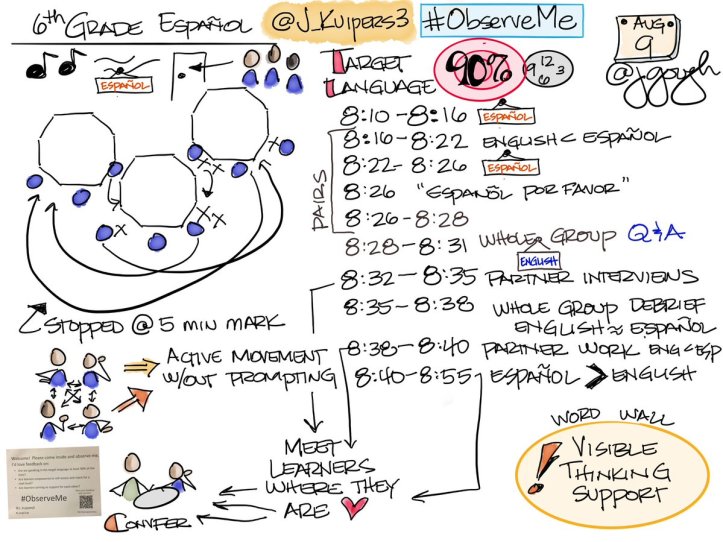 6th GRADE ESPAÑOL @J_KUIPERS3 #OBSERVEME
AUG
9
@jgough
ESPAÑOL
TARGET
LANGUAGE
90%
12
9 3
6
8:10-8:16 ESPAÑOL
PAIRS
8:16-8:22 ENGLISH < ESPAÑOL
8:22-8:26 ESPAÑOL
8:26 "ESPAÑOL POR FAVOR"
8:26-8:28
8:28-8:31 WHOLE GROUP Q&A
ENGLISH
8:32-8:35 PARTNER INTERVIEWS
8:35-8:38 WHOLE GROUP DEBRIEF
ENGLISH ≈ ESPAÑOL
8:38-8:40 PARTNER WORK ENG < ESP
8:40-8:55 ESPAÑOL > ENGLISH
X X
X
X
X X
X
STOPPED @ 5 MIN MARK
ACTIVE MOVEMENT
W/OUT PROMPTING
MEET
LEARNERS
WHERE THEY
ARE
CONFER
WORD WALL
VISIBLE
THINKING
SUPPORT
Welcome! Please come inside and observe me.
I'd love feedback on:
#ObserveMe